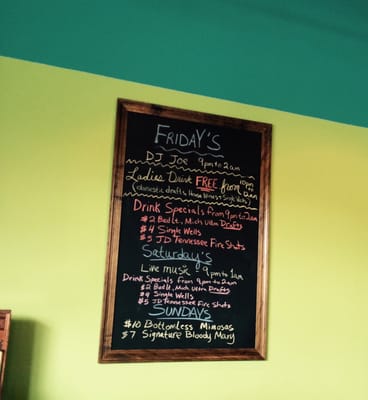 FRIDAY'S
DJ Joe 9pm to 2am
Ladies Drink FREE from
(domestic drafts, House
Drink Specials from 9pm to 2am
$2 Bud Lt, Mich Ultra Drafts
$4 Single Wells
$5 JD Tennessee Fire Shots
Saturday's
Live music 9pm to 1am
Drink Specials from 9pm to 2am
$2 Bud Lt, Mich Ultra Drafts
$4 Single Wells
$5 JD Tennessee Fire Shots
SUNDAYS
$10 Bottomless Mimosas
$7 Signature Bloody Mary